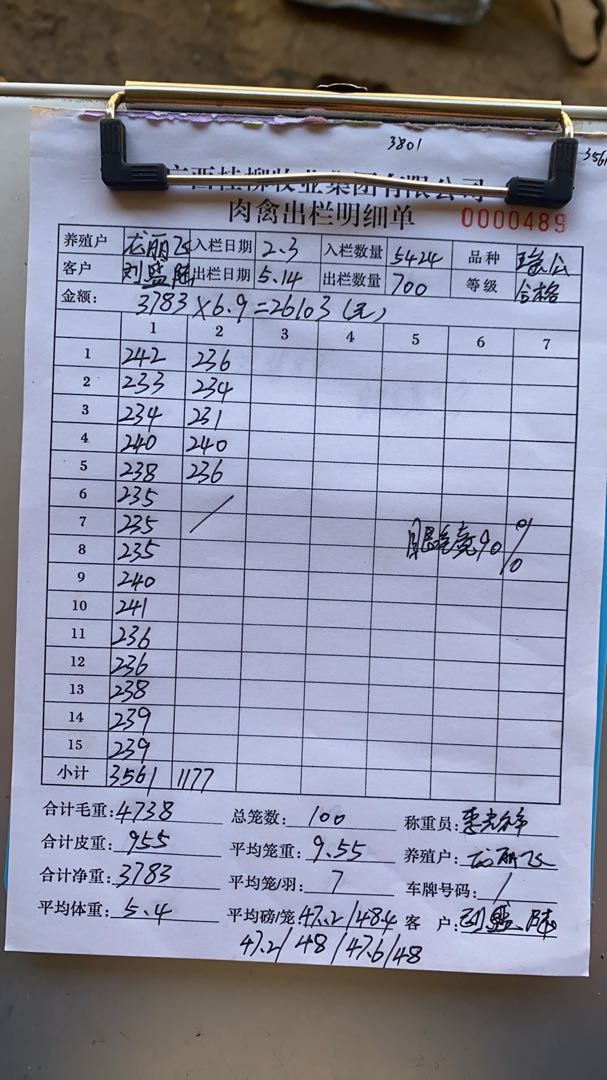 3801
3561
广西桂柳牧业集团有限公司
肉禽出栏明细单 0000489
养殖户 龙丽飞 入栏日期 2.3 入栏数量 5424 品种 瑶公
客户 刘盛陆 出栏日期 5.14 出栏数量 700 等级 合格
金额: 3783×6.9=26103(元)
1 2 3 4 5 6 7
1 242 236
2 233 234
3 234 231
4 240 240
5 238 236
6 235
7 235 /
8 235 眼毛亮90%
9 240
10 241
11 236
12 236
13 238
14 239
15 239
小计 3561 1177
合计毛重:4738 总笼数:100 称重员:
合计皮重:955 平均笼重:9.55 养殖户:龙丽飞
合计净重:3783 平均笼/羽:7 车牌号码:/
平均体重:5.4 平均磅/笼:47.2/48.4 客户:刘盛陆
47.2/48/47.6/48